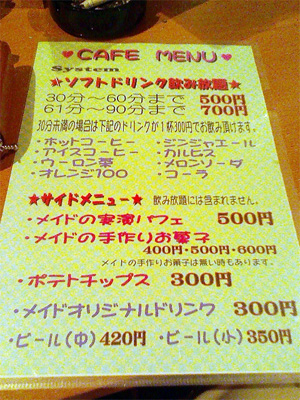 ♥ CAFE MENU ♥
System
★ソフトドリンク飲み放題★
30分～60分まで 500円
61分～90分まで 700円
30分未満の場合は下記のドリンクが1杯300円でお飲み頂けます。
・ホットコーヒー ・ジンジャエール
・アイスコーヒー ・カルピス
・ウーロン茶 ・メロンソーダ
・オレンジ100 ・コーラ
★サイドメニュー★ 飲み放題には含まれません。
・メイドの実演パフェ 500円
・メイドの手作りお菓子
400円・500円・600円
メイドの手作りお菓子は無い時もあります。
・ポテトチップス 300円
・メイドオリジナルドリンク 300円
・ビール(中)420円 ・ビール(小)350円